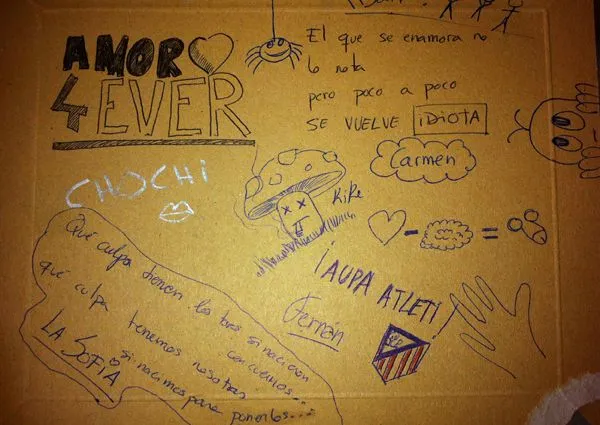 AMOR
4 EVER
El que se enamora no
lo nota
pero poco a poco
SE VUELVE IDIOTA
Carmen
CHOCHI
KIKE
¡AUPA ATLETI!
Fernán
Qué culpa tienen
si nacieron
con cuernos...
qué culpa tenemos nosotras
si nacimos para ponerlos...
LA SOFIA